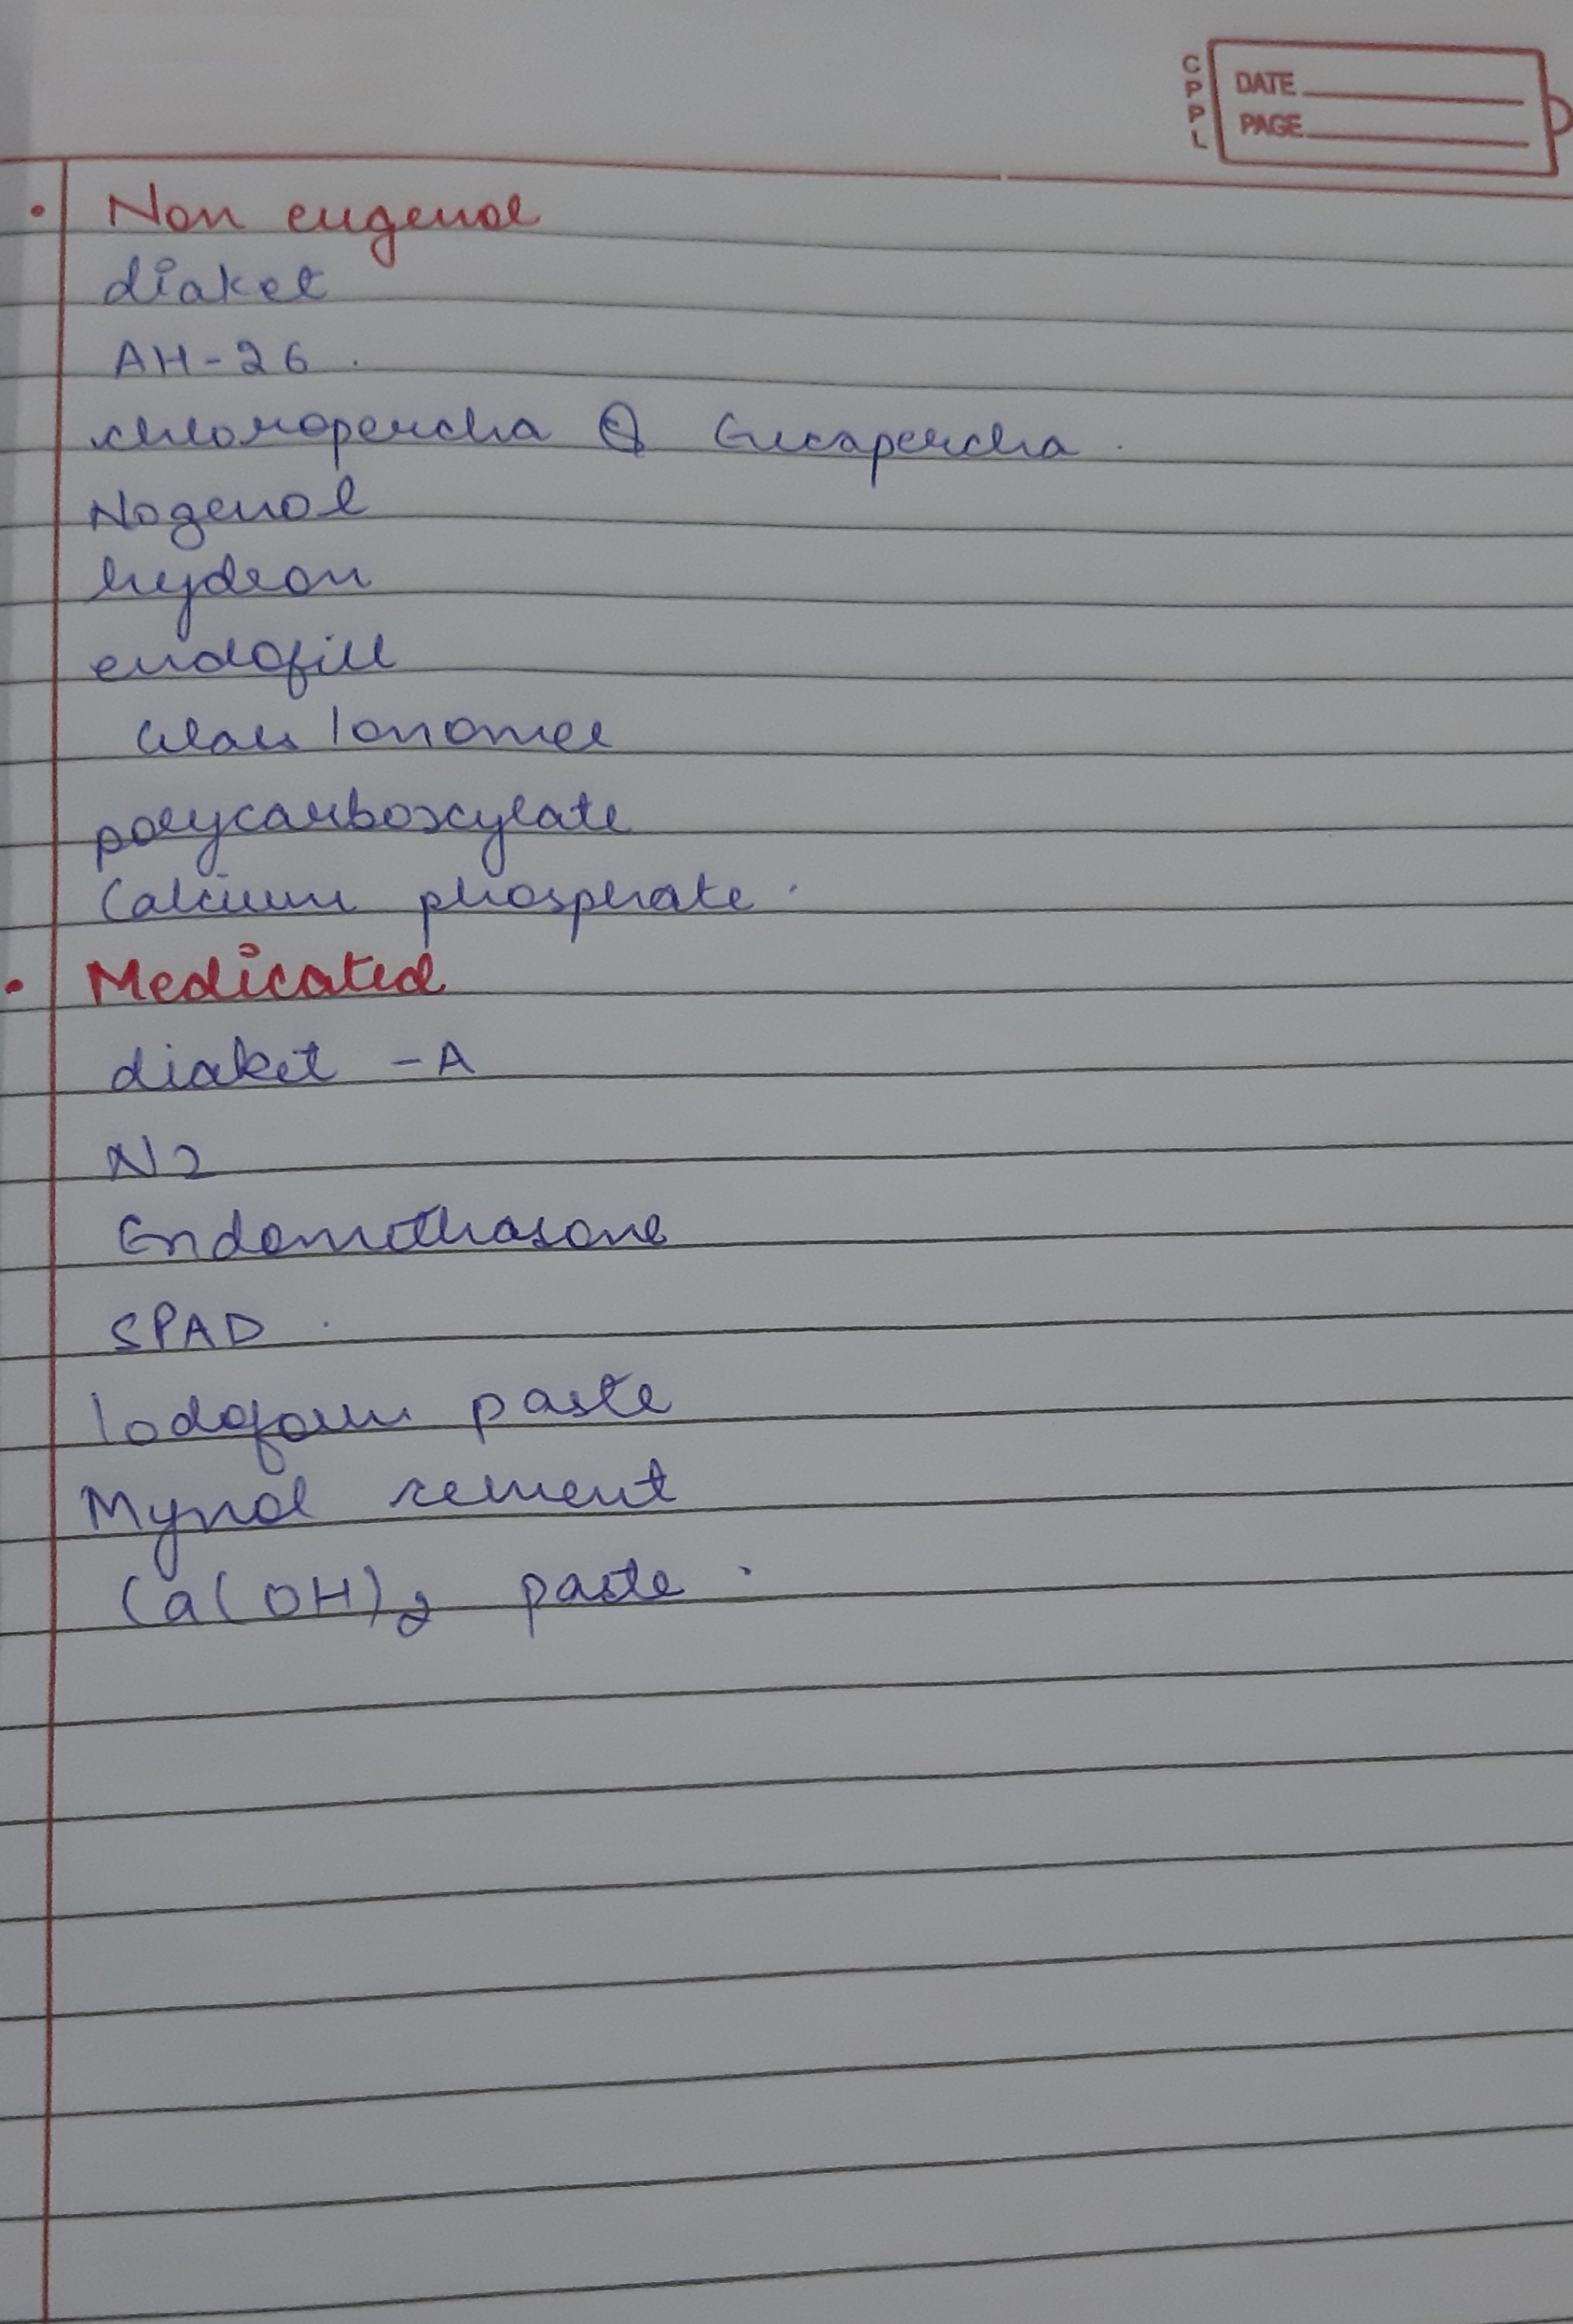 CPPL
DATE
PAGE
• Non eugenol
diaket
AH-26.
chloropercha & Eucapercha.
Nogenol
hydron
endofill
Glass Ionomer
polycarboxylate
Calcium phosphate.
• Medicated
diaket -A
N2
Endomethasone
SPAD.
Iodoform paste
Mynol cement
Ca(OH)2 paste.